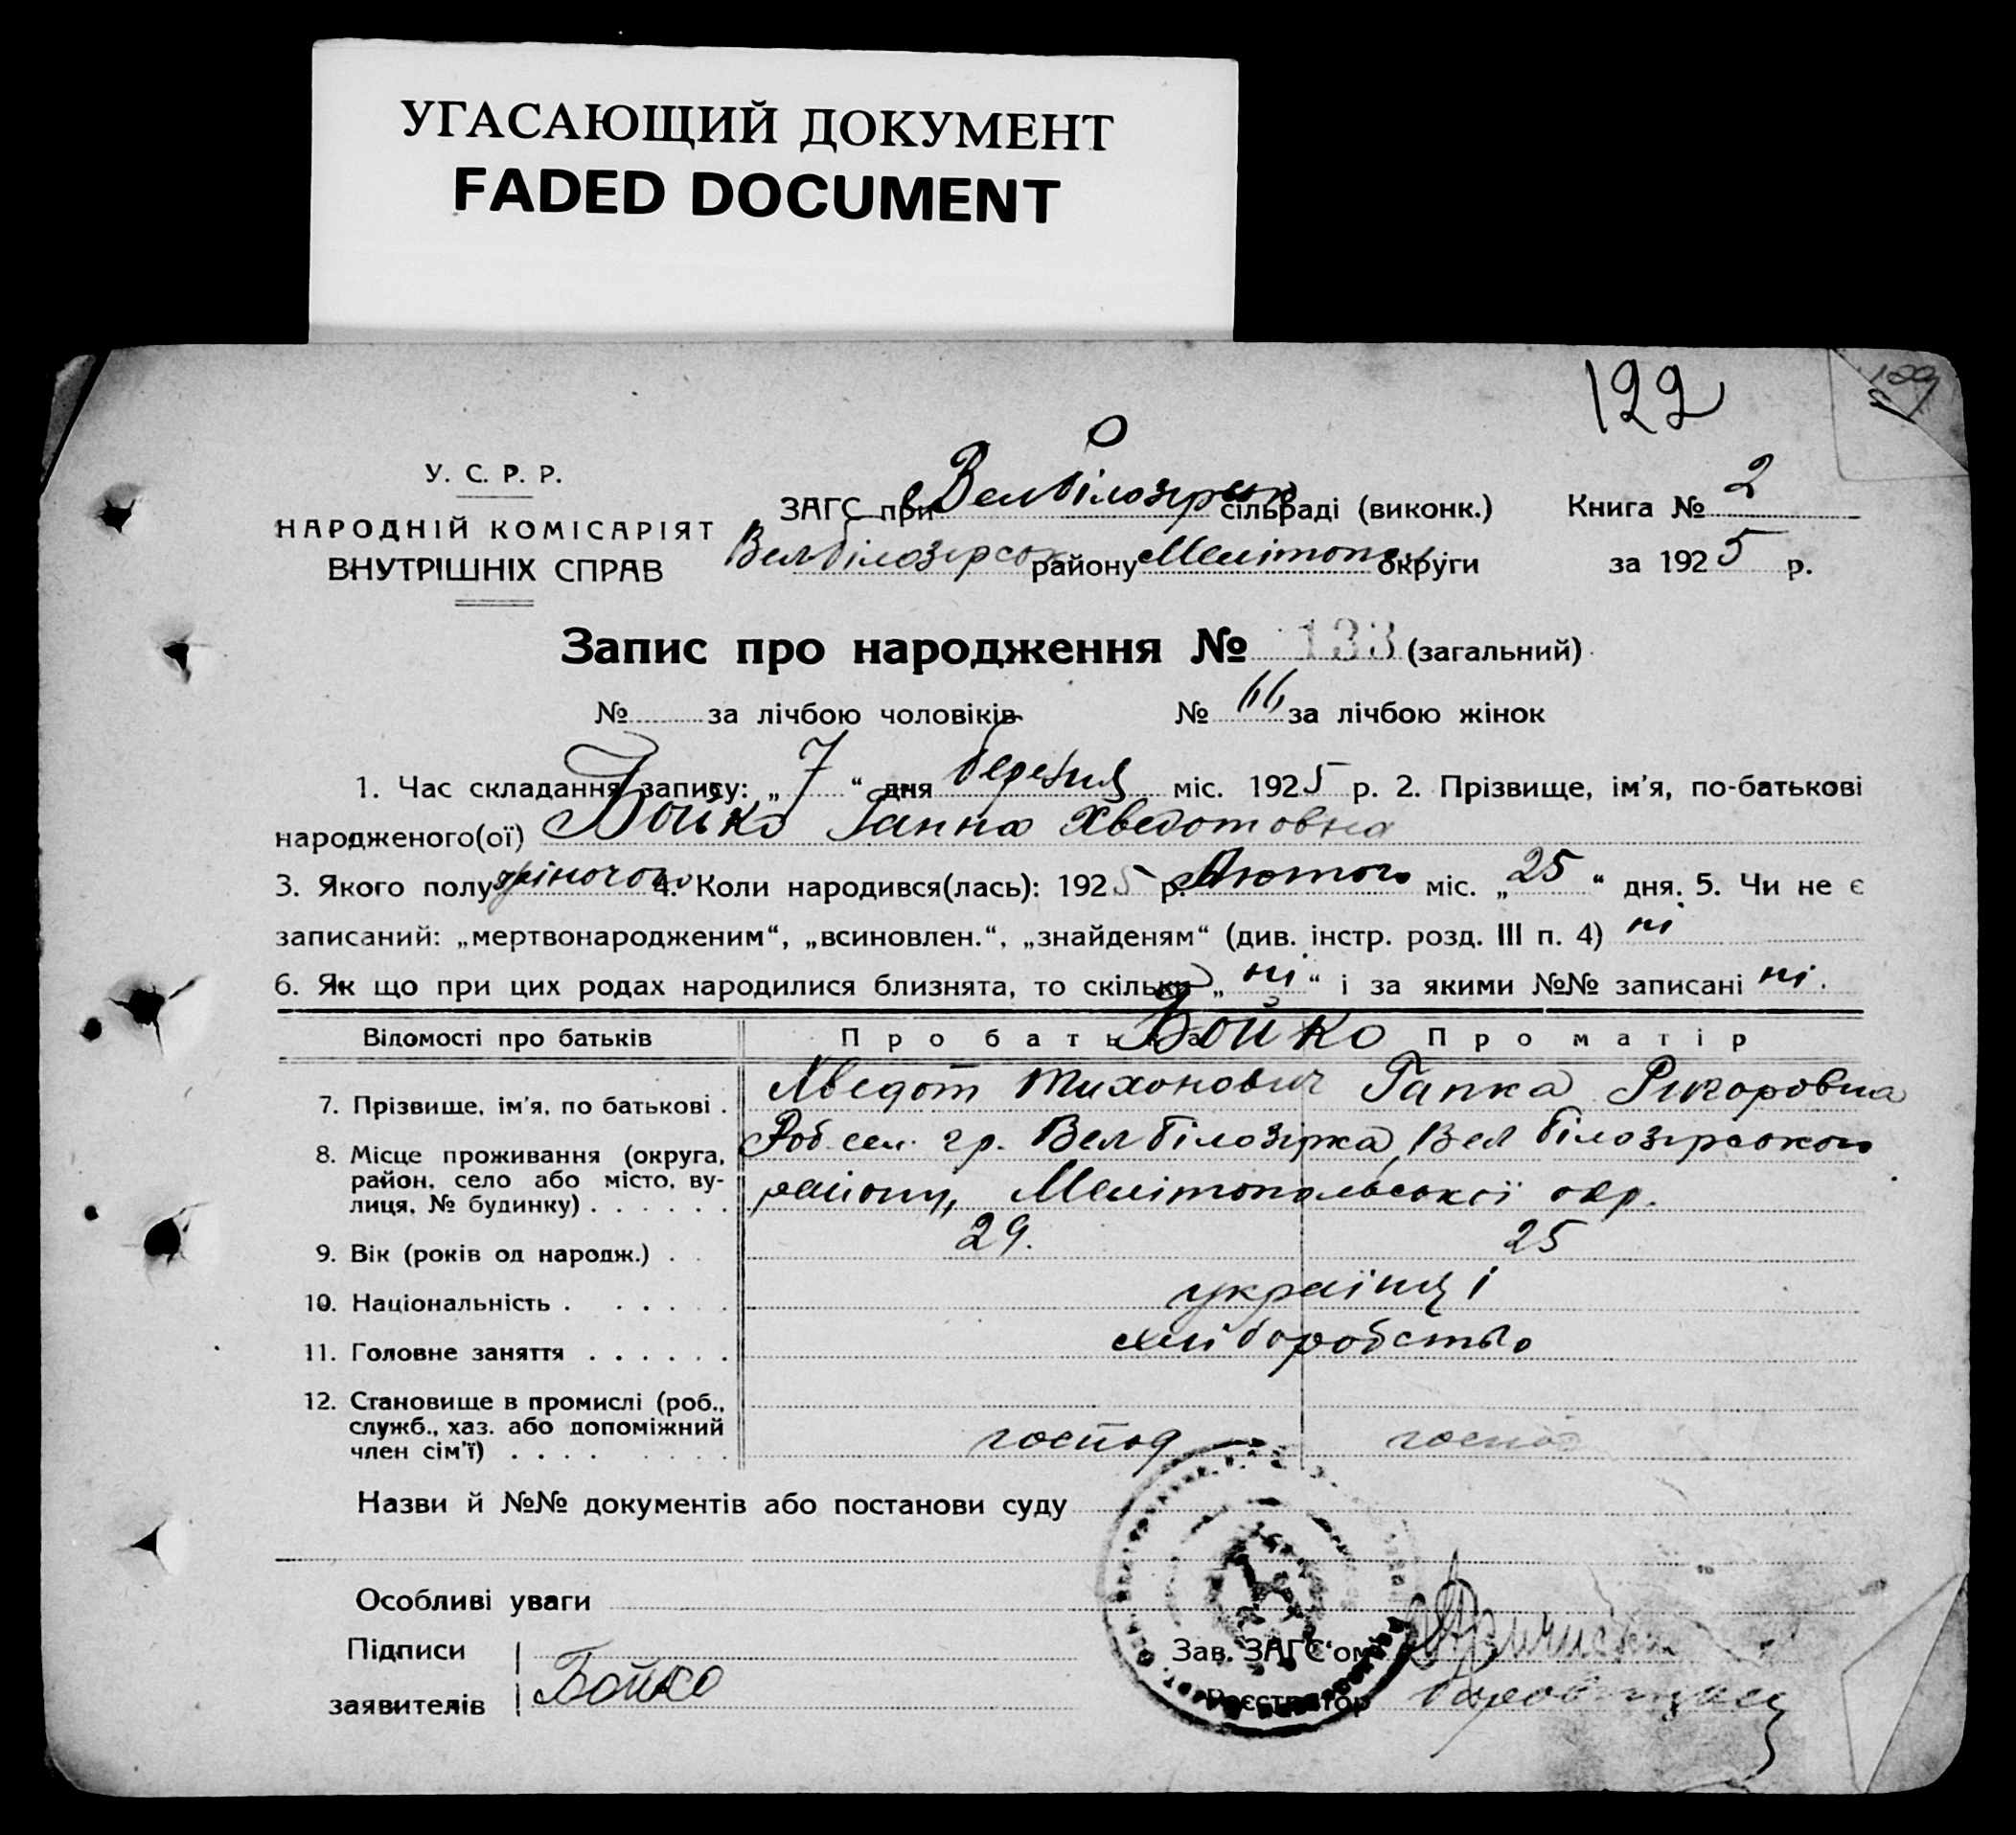 УГАСАЮЩИЙ ДОКУМЕНТ
FADED DOCUMENT
122
У. С. Р. Р.
НАРОДНІЙ КОМІСАРІЯТ
ВНУТРІШНІХ СПРАВ
ЗАГС при Велбілозірськ сільраді (виконк.)
Велбілозірсь району Мелітоп округи
Книга № 2
за 1925 р.
Запис про народження № 133 (загальний)
№ за лічбою чоловіків № 66 за лічбою жінок
1. Час складання запису: „ 7 “ дня березня міс. 1925 р. 2. Прізвище, ім’я, по-батькові
народженого(ої) Бойко Ганна Хведотовна
3. Якого полу жіночого 4. Коли народився(лась): 1925 р. Лютого міс. „ 25 “ дня. 5. Чи не є
записаний: „мертвонародженим“, „всиновлен.“, „знайденям“ (див. інстр. розд. III п. 4) ні
6. Як що при цих родах народилися близнята, то скільки „ ні “ і за якими №№ записані ні.
Відомості про батьків Про батька Бойко Про матір
7. Прізвище, ім’я, по батькові . Хведот Тихонович Гапка Григоровна
8. Місце проживання (округа,
район, село або місто, ву-
лиця, № будинку) . . . . . .
гр. Вел білозірка, Вел білозірського
району, Мелітопольської окр.
9. Вік (років од народж.) . . 29. 25
10. Національність . . . . . . українці
11. Головне заняття . . . . . . хліборобство
12. Становище в промислі (роб.,
служб., хаз. або допоміжний
член сім’ї) . . . .
господ господ
Назви й №№ документів або постанови суду
Особливі уваги
Підписи
заявителів
Бойко
Зав. ЗАГС‘ом
Реєстратор